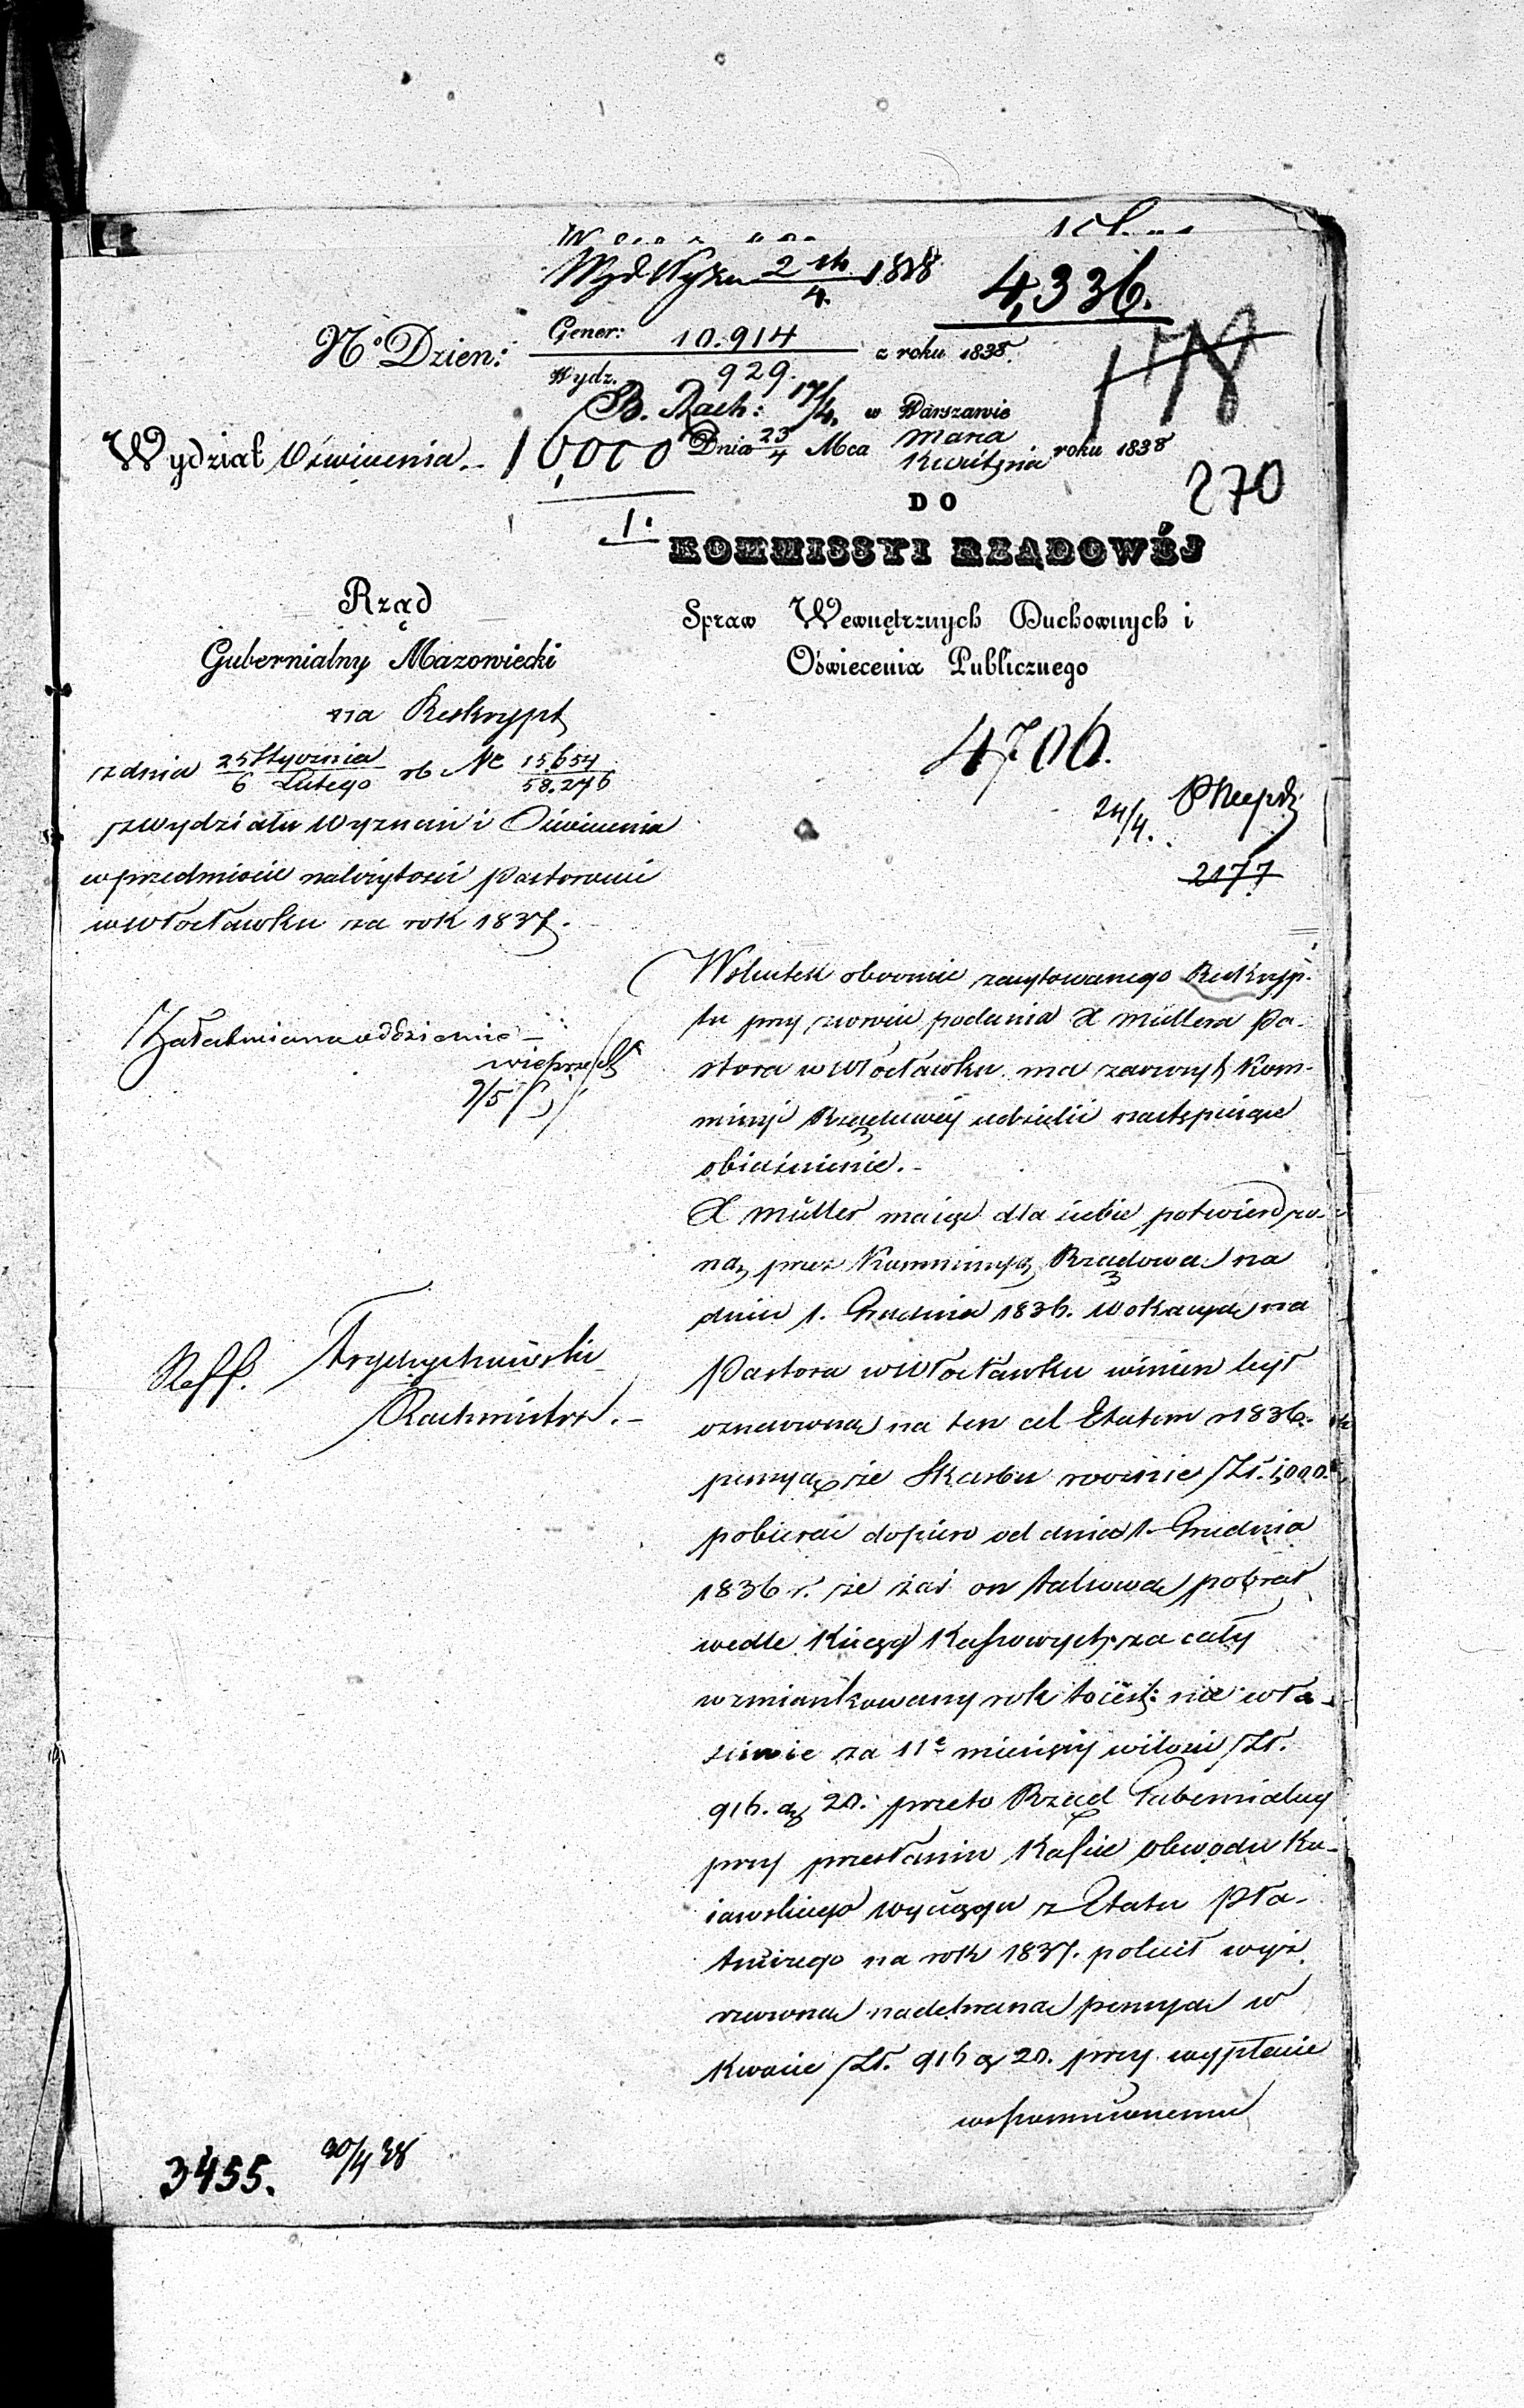 4,336.
N° Dzien: Gener: 10.914 z roku 1838.
Wydz. 929.
B. Rach: 17/4. w Warszawie
Wydział Oświecenia. Dnia 23/4 Mca Marca Kwietnia roku 1838
270
DO
1.
KOMMISSYI RZĄDOWÉJ
Rząd
Gubernialny Mazowiecki
Spraw Wewnętrznych Duchownych i
Oświecenia Publicznego
na Reskrypt
z dnia 25 Stycznia / 6 Lutego rb No 15.654 / 58.276
z wydziału Wyznań i Oświecenia
w przedmiocie należytości Pastorowi
w Włocławku za rok 1837.
4706.
24/4.
2177
Załatwiono oddzielnie
9/5
Reff.
Rachmistrz.
Wskutek obocznie zacytowanego Reskryp-
tu przy zwrocie podania X Müllera Pa-
stora w Włocławku ma zaszczyt Kom-
missyi Rządowéy udzielić następujące
obiaśnienie.
X Müller maiąc dla siebie potwierdzo-
ną przez Kommissyą Rządową na
dniu 1. Grudnia 1836. wokacyą na
Pastora w Włocławku winien był
oznaczoną na ten cel Etatem r 1836.
pensyą ze Skarbu rocznie Zł. 1,000.
pobierać dopiero od dnia 1 Grudnia
1836 r. że zaś on takową pobrał
wedle Kiąg Kassowych za cały
wzmiankowany rok to iest: nie wła-
ściwie za 11e miesięcy w ilości Zł.
916. gr 20. przeto Rząd Gubernialny
przy przesłaniu Kassie obwodu Ku-
iawskiego wyciągu z Etatu Pła-
tniczego na rok 1837. polecił wyż
rzeczoną nadebraną pensyą w
kwocie Zł. 916 gr 20. przy wypłacie
wspomnionemu
3455. 20/4 38